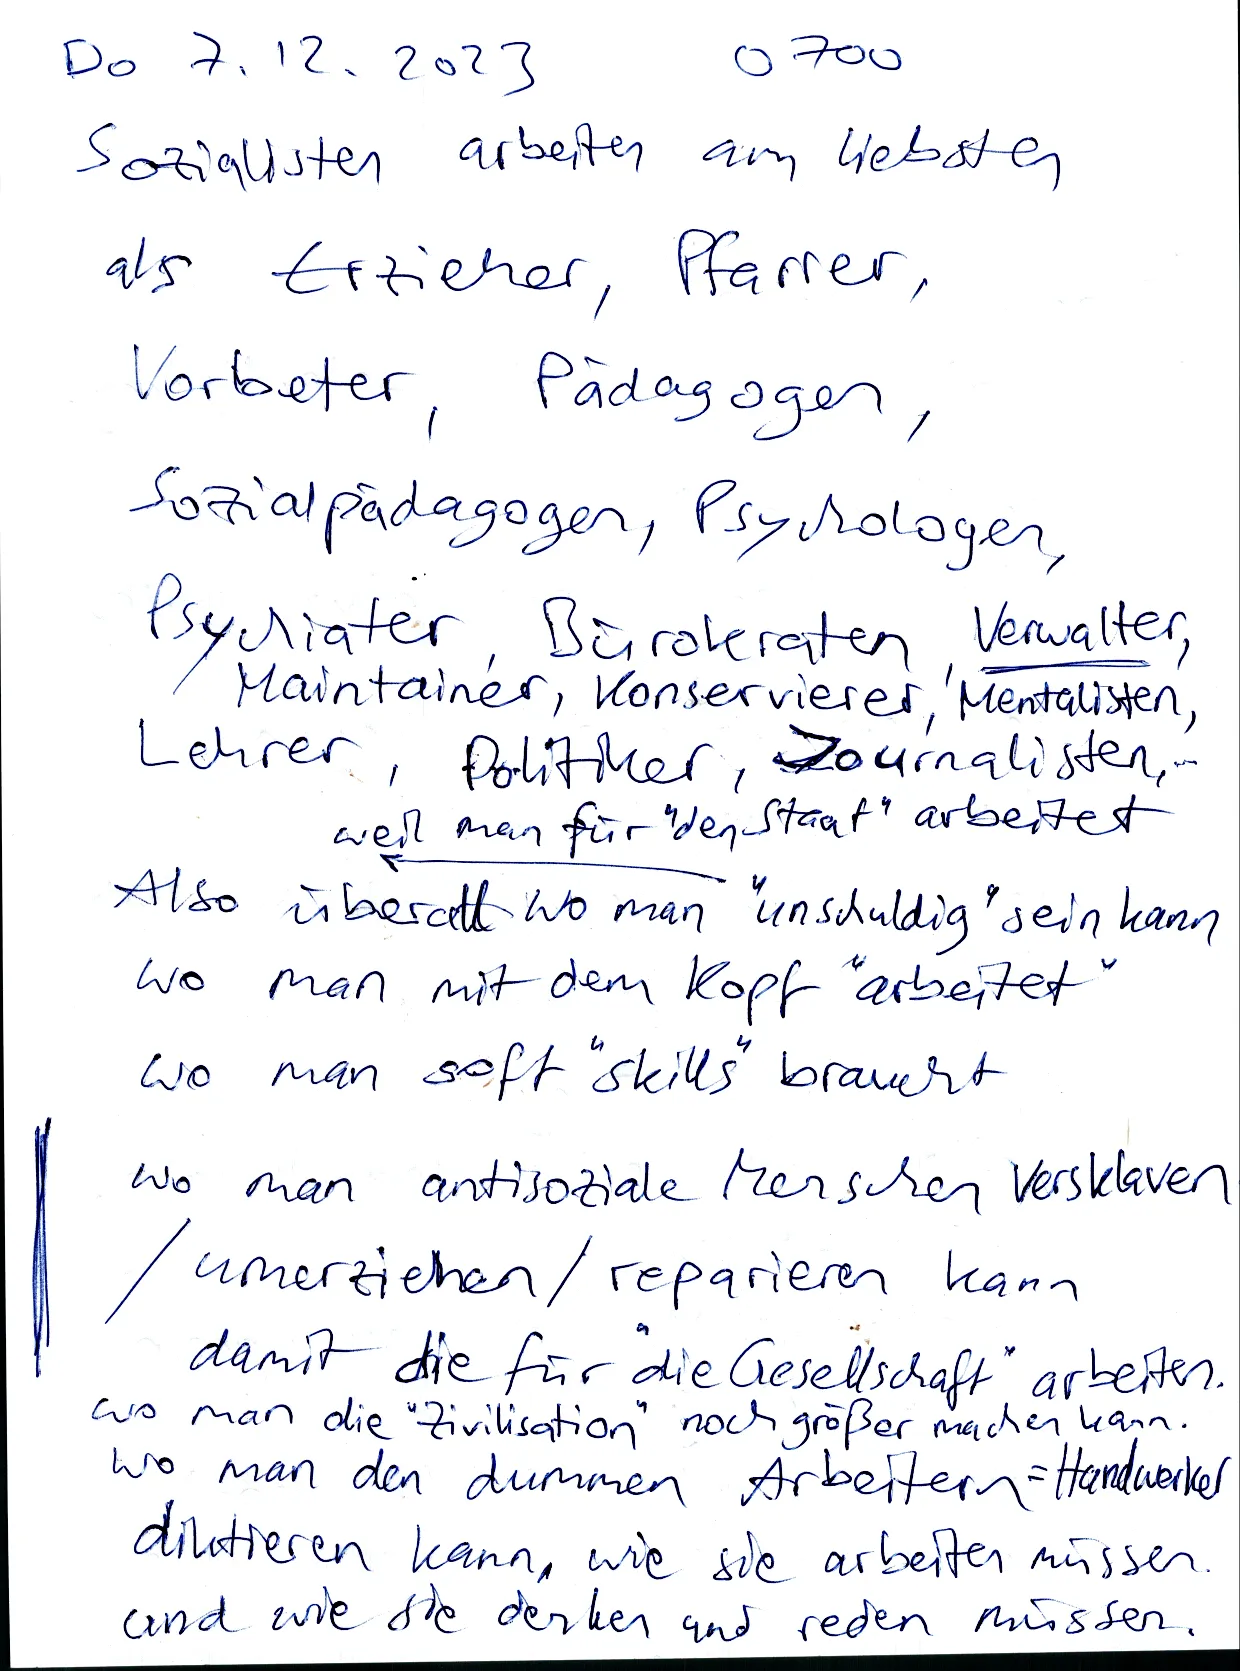 Do 7.12.2023 0700
Sozialisten arbeiten am liebsten
als Erzieher, Pfarrer,
Vorbeter, Pädagogen,
Sozialpädagogen, Psychologen,
Psychiater, Bürokraten, Verwalter,
Maintainer, Konservierer, Mentalisten,
Lehrer, Politiker, Journalisten,..
weil man für "den Staat" arbeitet
Also überall wo man "unschuldig" sein kann
wo man mit dem Kopf "arbeitet"
wo man soft "skills" braucht
wo man antisoziale Menschen versklaven
/umerziehen/reparieren kann
damit die für "die Gesellschaft" arbeiten.
wo man die "Zivilisation" noch größer machen kann.
wo man den dummen Arbeitern = Handwerker
diktieren kann, wie sie arbeiten müssen.
und wie sie denken und reden müssen.